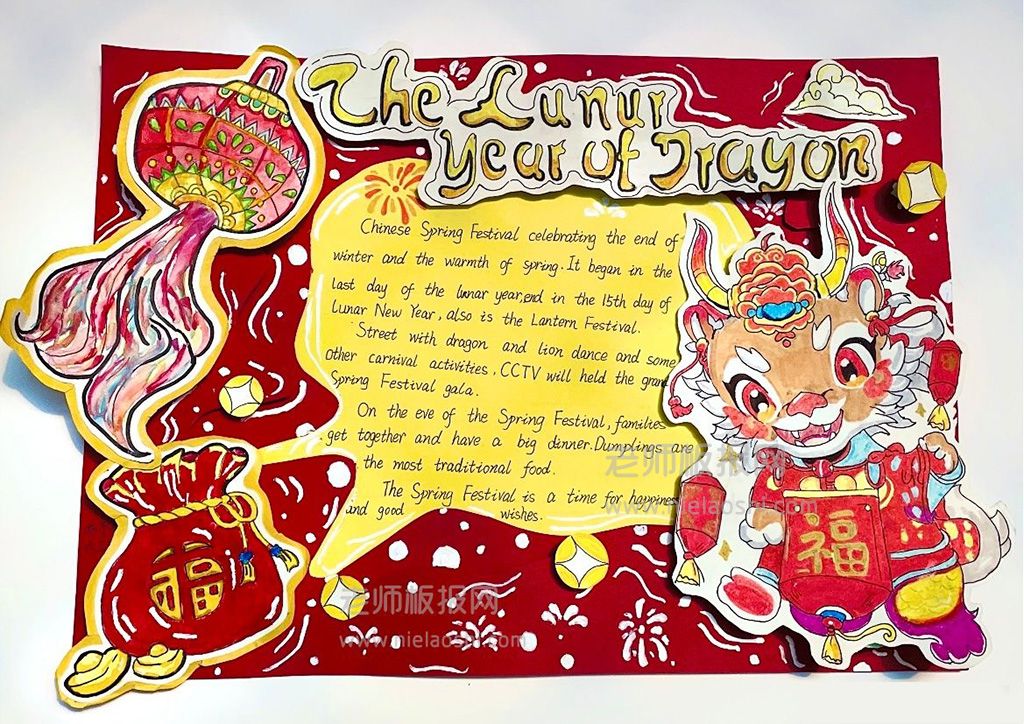 The Lunur
Year of Drayon
Chinese Spring Festival celebrating the end of
winter and the warmth of spring. It began in the
last day of the lunar year,end in the 15th day of
Lunar New Year, also is the Lantern Festival.
Street with dragon and lion dance and some
Other carnival activities, CCTV will held the grand
Spring Festival gala.
On the eve of the Spring Festival, families
get together and have a big dinner. Dumplings are
the most traditional food.
The Spring Festival is a time for happiness
and good wishes.
老师板报网
www.nielaoshi.com
福
福
老师板报网
www.nielaoshi.com